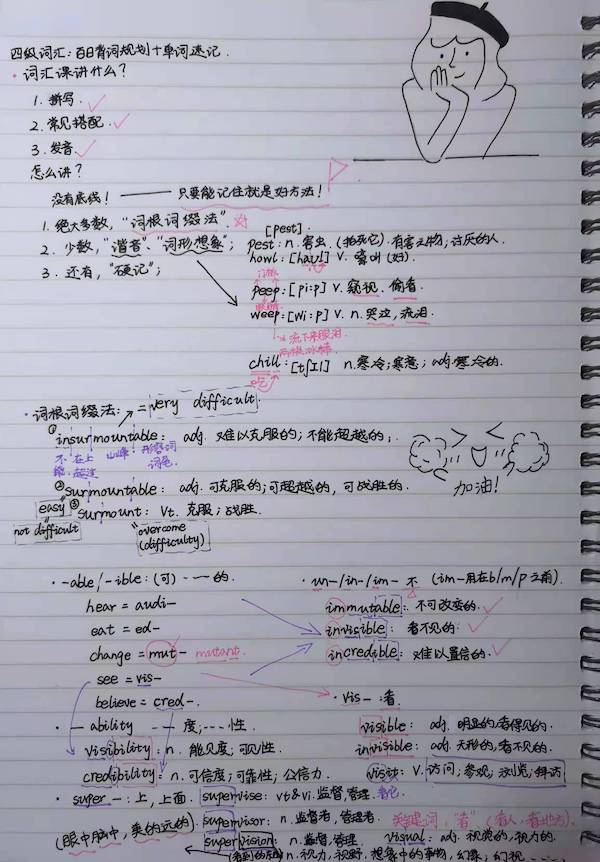 四级词汇：百日背词规划+单词速记.
· 词汇课讲什么？
1. 拼写.
2. 常见搭配.
3. 发音.
怎么讲？
没有底线！—— 只要能记住就是好方法！
1. 绝大多数，"词根词缀法". 对
2. 少数，"谐音"、"词形想象"；
3. 还有，"硬记"；
[pest]
pest: n. 害虫. (拍死它). 有害之物；讨厌的人.
howl: [haʊl] v. 嚎叫 (好).
peep: [pi:p] v. 窥视. 偷看.
weep: [wi:p] v. n. 哭泣，流泪.
流下来眼泪
chill: [tʃIl] n. 寒冷；寒意；adj. 寒冷的.
吃
· 词根词缀法： = very difficult.
① insurmountable: adj. 难以克服的；不能超越的；
不 在上 山峰 形容词
能 超过 词尾
② surmountable: adj. 可克服的；可超越的，可战胜的.
easy
③ surmount: vt. 克服；战胜.
not difficult
overcome
(difficulty)
加油！
· -able/-ible: (可)……的.
hear = audi-
eat = ed-
change = mut- mutant.
see = vis-
believe = cred-.
· un-/in-/im- 不 (im-用在b/m/p之前).
immutable: 不可改变的.
invisible: 看不见的.
incredible: 难以置信的.
· vis- 看
visible: adj. 明显的，看得见的.
invisible: adj. 无形的，看不见的.
visit: v. 访问；参观，浏览；拜访
· -ability ……度；……性.
visibility: n. 能见度；可见性.
credibility: n. 可信度；可靠性；公信力.
· super-: 上，上面.
supervise: vt&vi. 监督，管理.
supervisor: n. 监督者，管理者.
关键词，"看" (看人，看地方).
supervision: n. 监督，管理.
visual: adj. 视觉的，视力的.
n. 视力，视野，想象中的事物，幻象，幻视